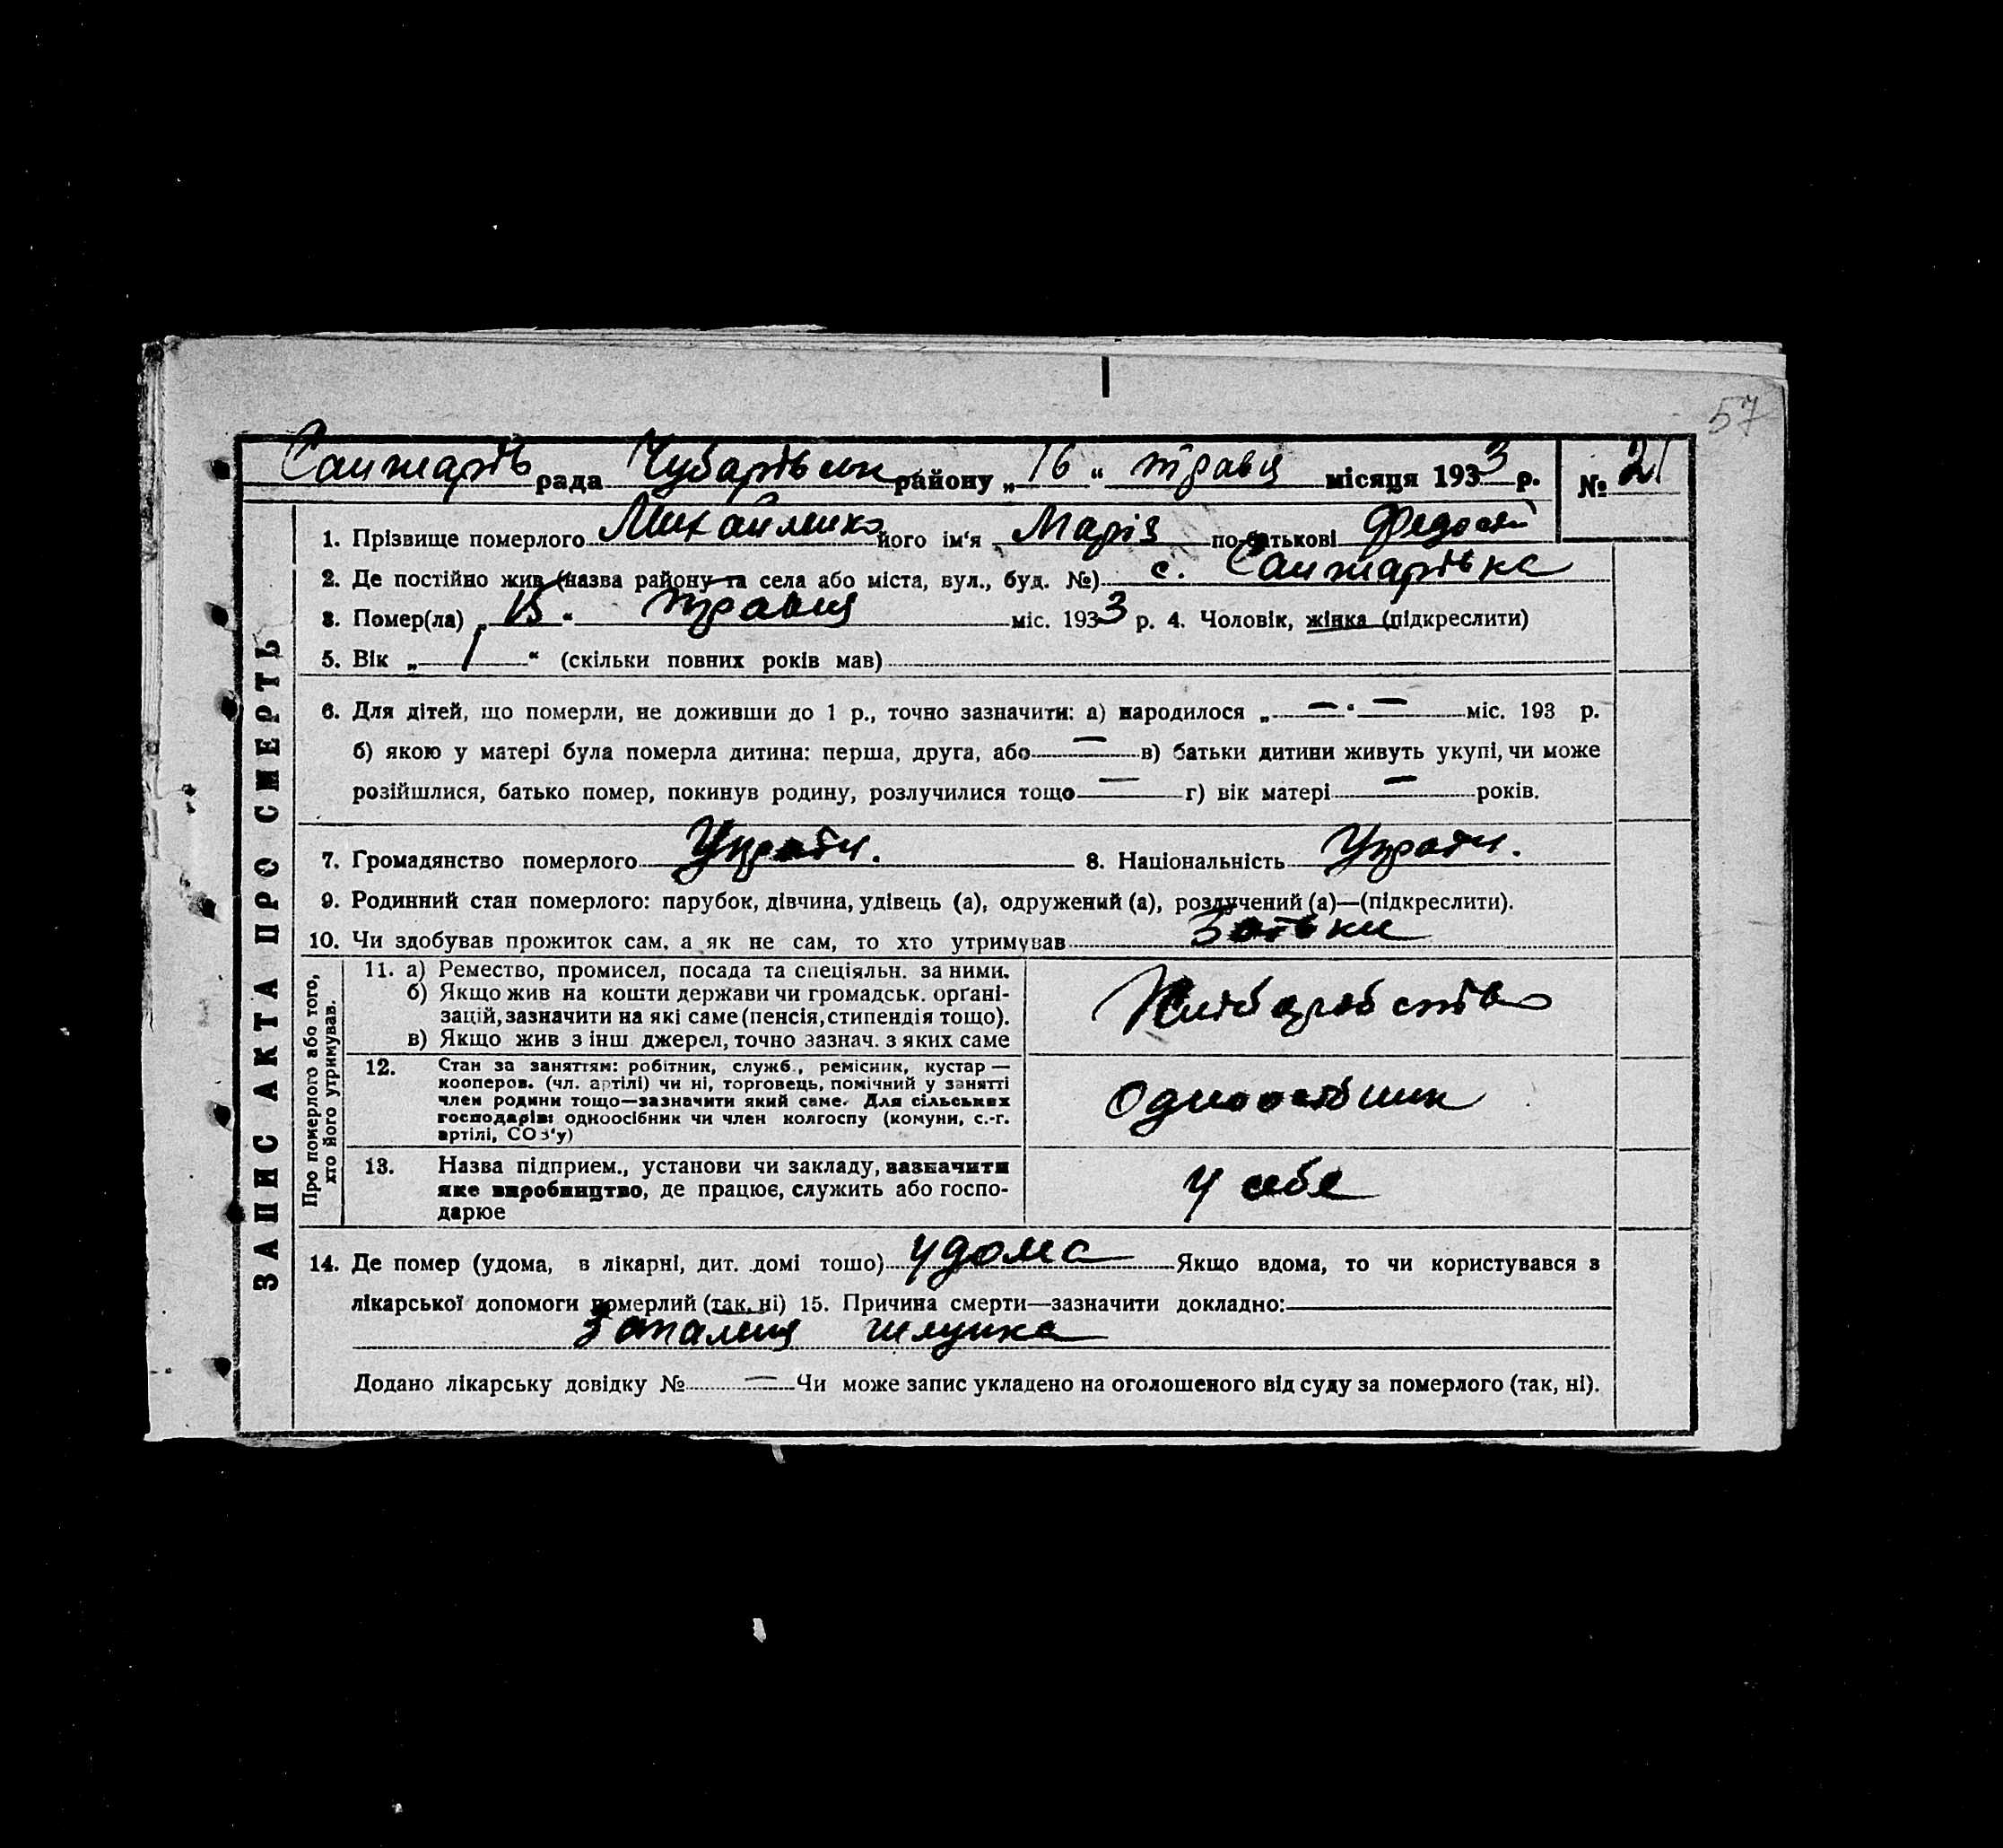 57
Санжарів рада Чубарівськ району „16“ травня місяця 1933 р. № 21
ЗАПИС АКТА ПРО СМЕРТЬ
1. Прізвище померлого Михайличко його ім'я Марія по-батькові Федосій
2. Де постійно жив (назва району та села або міста, вул., буд. №) с. Санжарівка
3. Помер(ла) „15“ травня міс. 1933 р. 4. Чоловік, жінка (підкреслити)
5. Вік „1“ (скільки повних років мав)
6. Для дітей, що померли, не доживши до 1 р., точно зазначити: а) народилося „—“ — міс. 193 р.
б) якою у матері була померла дитина: перша, друга, або — в) батьки дитини живуть укупі, чи може
розійшлися, батько помер, покинув родину, розлучилися тощо — г) вік матері — років.
7. Громадянство померлого Україн. 8. Національність Україн.
9. Родинний стан померлого: парубок, дівчина, удівець (а), одружений (а), розлучений (а)—(підкреслити).
10. Чи здобував прожиток сам, а як не сам, то хто утримував Батьки
Про померлого або того,
хто його утримував.
11. а) Ремество, промисел, посада та спеціяльн. за ними.
б) Якщо жив на кошти держави чи громадськ. органі-
зацій, зазначити на які саме (пенсія, стипендія тощо).
в) Якщо жив з інш джерел, точно зазнач. з яких саме
Хліборобство
12. Стан за заняттям: робітник, служб., ремісник, кустар —
кооперов. (чл. артілі) чи ні, торговець, помічний у занятті
член родини тощо—зазначити який саме. Для сільських
господарів: одноосібник чи член колгоспу (комуни, с.-г.
артілі, СОЗ'у)
Одноосібник
13. Назва підприєм., установи чи закладу, зазначити
яке виробництво, де працює, служить або госпо-
дарює
у себе
14. Де помер (удома, в лікарні, дит. домі тощо) удома Якщо вдома, то чи користувався з
лікарської допомоги померлий (так, ні) 15. Причина смерти—зазначити докладно:
Запалення шлунка
Додано лікарську довідку № — Чи може запис укладено на оголошеного від суду за померлого (так, ні).